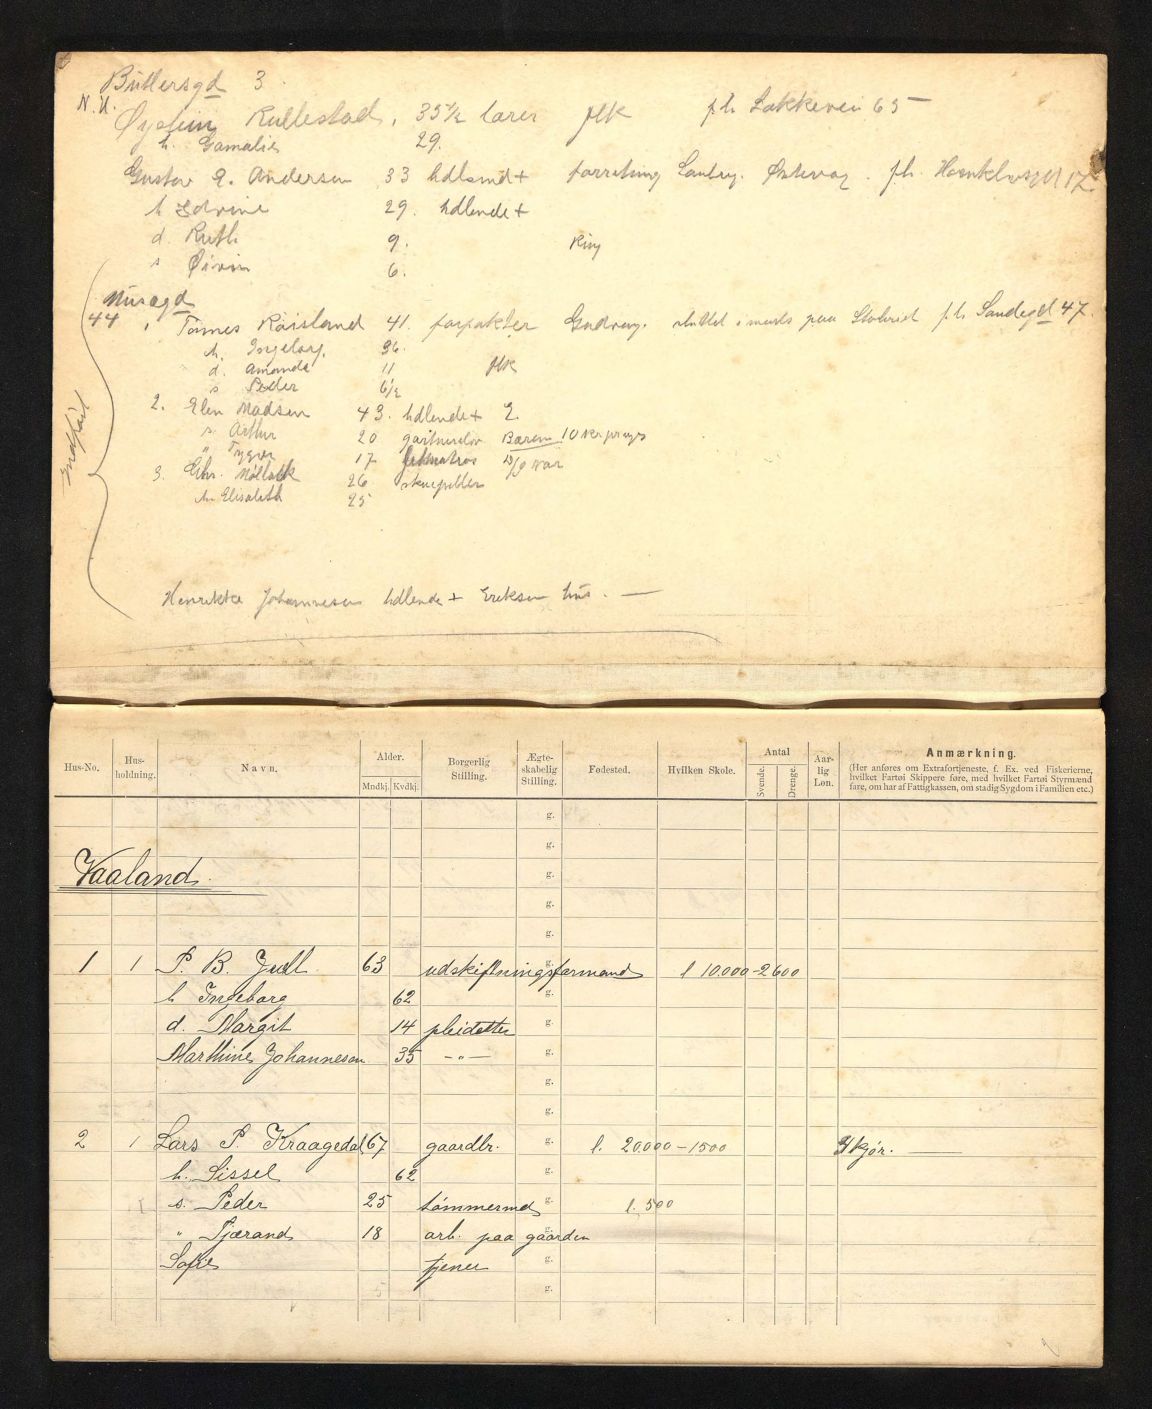 3
N.U.
Øystein Rullestad. 35 1/2 lærer flk fh Løkkevei 65
h. Gamalie 29.
Gustav E. Andersen 33 hdlsmd+ forretning Østervåg. f.h. 17.
h Edvine 29. hdlende+
d. Ruth 9. King
s Øivin 6.
Musegd
44 1 Tønnes Røisland 41. forpakter sluttet i marts paa f.h. Sandegd 47.
h. Ingeborg. 36.
d. Amanda 11 flk
s Peder 6 1/2
2. Elen Madsen 43. hdlende+ E.
s. Arthur 20 gartnerelev Bærum 10 kr
" Trygve 17
3. Chr. 26
h. Elisabeth 25
Indført
Henrikke Johannesen hdlende + Eriksen hus. —
Hus-No. Hus-holdning. Navn. Alder. Mndkj. Kvdkj. Borgerlig Stilling. Ægte-skabelig Stilling. Fødested. Hvilken Skole. Antal Svende. Drenge. Aar-lig Løn. Anmærkning.
(Her anføres om Extrafortjeneste, f. Ex. ved Fiskerierne,
hvilket Fartøi Skippere føre, med hvilket Fartøi Styrmænd
fare, om har af Fattigkassen, om stadig Sygdom i Familien etc.)
g.
g.
Vaaland. g.
g.
g.
1 1 P. B. Juell 63 udskiftningsformand g. l 10.000 - 2600
h Ingeborg 62 g.
d. Margit 14 pleidatter g.
Marthine Johannesen 35 - " - g.
g.
g.
2 1 Lars P. Kraagedal 67 gaardbr. g. l. 20.000 - 1500 kjør. —
h. Sissel 62 g.
s. Peder 25 tømmermd g. l. 500
" Tjærand 18 arb. paa gaarden g.
Sofie tjener g.
g.